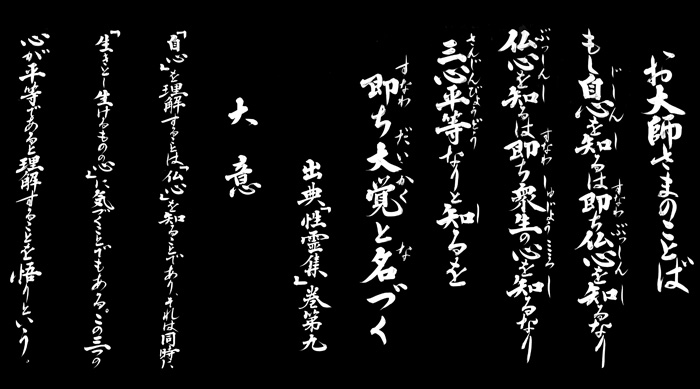 お大師さまのことば
もし自心を知るは即ち仏心を知るなり
仏心を知るは即ち衆生の心を知るなり
三心平等なりと知るを
即ち大覚と名づく
出典「性霊集」巻第九
大意
「自心」を理解することは、「仏心」を知ることであり、それは同時に
「生きとし生けるものの心」に気づくことでもある。この三つの
心が平等であると理解することを悟りという。